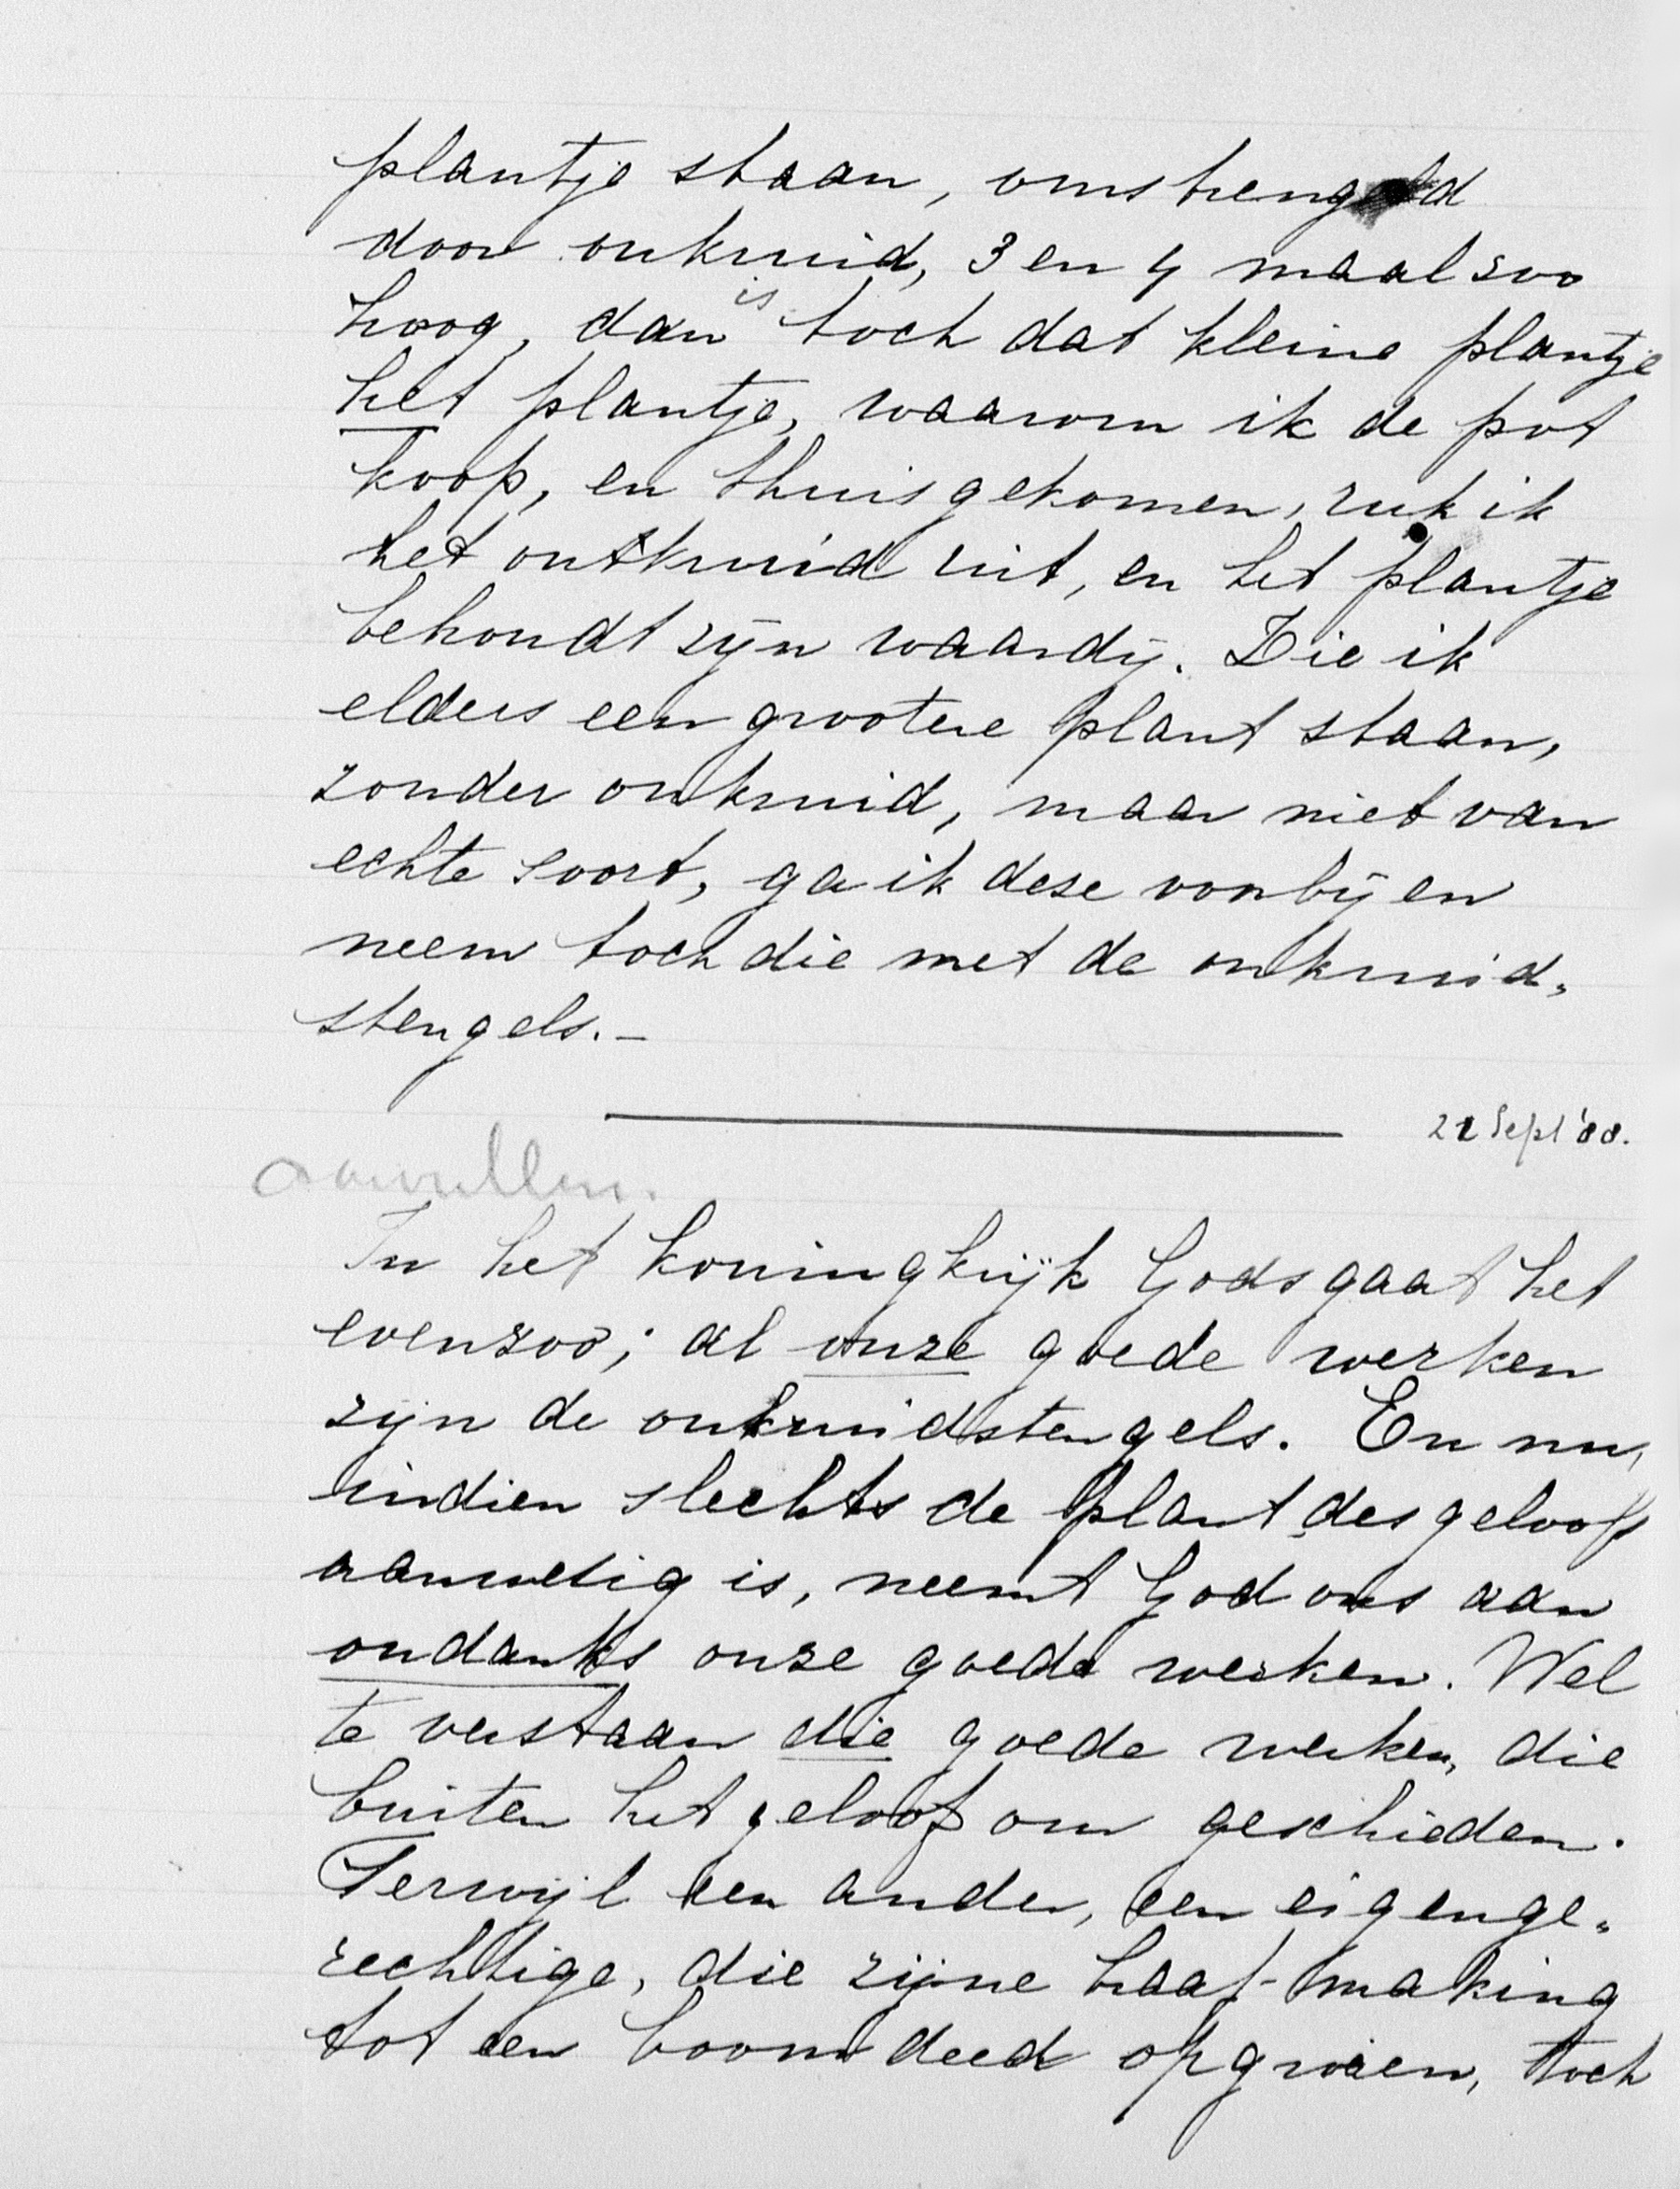 plantje staan, omstrengeld
door onkruid, 3 en 4 maal zoo
hoog, dan is toch dat kleine plantje
het plantje, waarom ik de pot
koop, en thuis gekomen, ruk ik
het ontkruid uit, en het plantje
behoudt zijn waardij. Zie ik
elders een grootere plant staan,
zonder onkruid, maar niet van
echte soort, ga ik deze voorbij en
neem toch die met de onkruid-
stengels. -
21 Sept '88.
aanvullen.
In het koningkrijk Gods gaat het
evenzoo; al onze goede werken
zijn de onkruidstengels. En nu,
indien slechts de plant des geloofs
aanwezig is, neemt God ons aan
ondanks onze goede werken. Wel
te verstaan die goede werken, die
buiten het geloof om geschieden.
Terwijl een ander, een eigenge-
rechtige, die zijne making
tot een boom deed opgroeien, toch